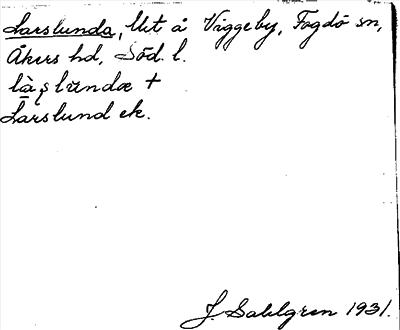 Larslunda, lht å Viggeby, Fogdö sn,
Åkers hd, Söd. l.
là̱şlŭndæ +
Larslund ek.
J. Sahlgren 1931.